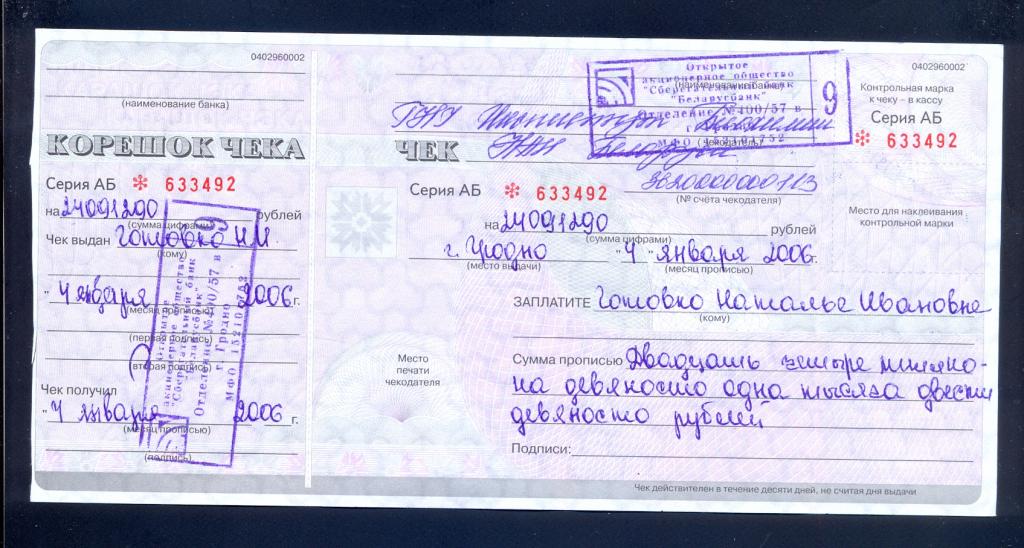 0402960002
(наименование банка)
КОРЕШОК ЧЕКА
Серия АБ * 633492
на 24091290 рублей
(сумма цифрами)
Чек выдан Готовко Н.И.
(кому)
"4 января 2006 г.
(месяц прописью)
(первая подпись)
(вторая подпись)
Чек получил
"4 января 2006 г.
(месяц прописью)
(подпись)
Открытое
акционерное общество
"Сберегательный банк
"Беларусбанк"
Отделение №400/57 в
г. Гродно
МФО 152101752
9
0402960002
Открытое
акционерное общество
"Сберегательный банк
"Беларусбанк"
Отделение №400/57 в
МФО 152101752
9
(наименование банка)
ЧЕК
(чекодатель)
3620000000113
(№ счёта чекодателя)
Серия АБ * 633492
на 24091290 рублей
(сумма цифрами)
г. Гродно "4" января 2006 г.
(место выдачи) (месяц прописью)
ЗАПЛАТИТЕ Готовко Наталье Ивановне
(кому)
Место
печати
чекодателя
Сумма прописью Двадцать четыре миллио-
на девяносто одна тысяча двести
девяносто рублей
Подписи:
Чек действителен в течение десяти дней, не считая дня выдачи
Контрольная марка
к чеку – в кассу
Серия АБ
* 633492
Место для наклеивания
контрольной марки